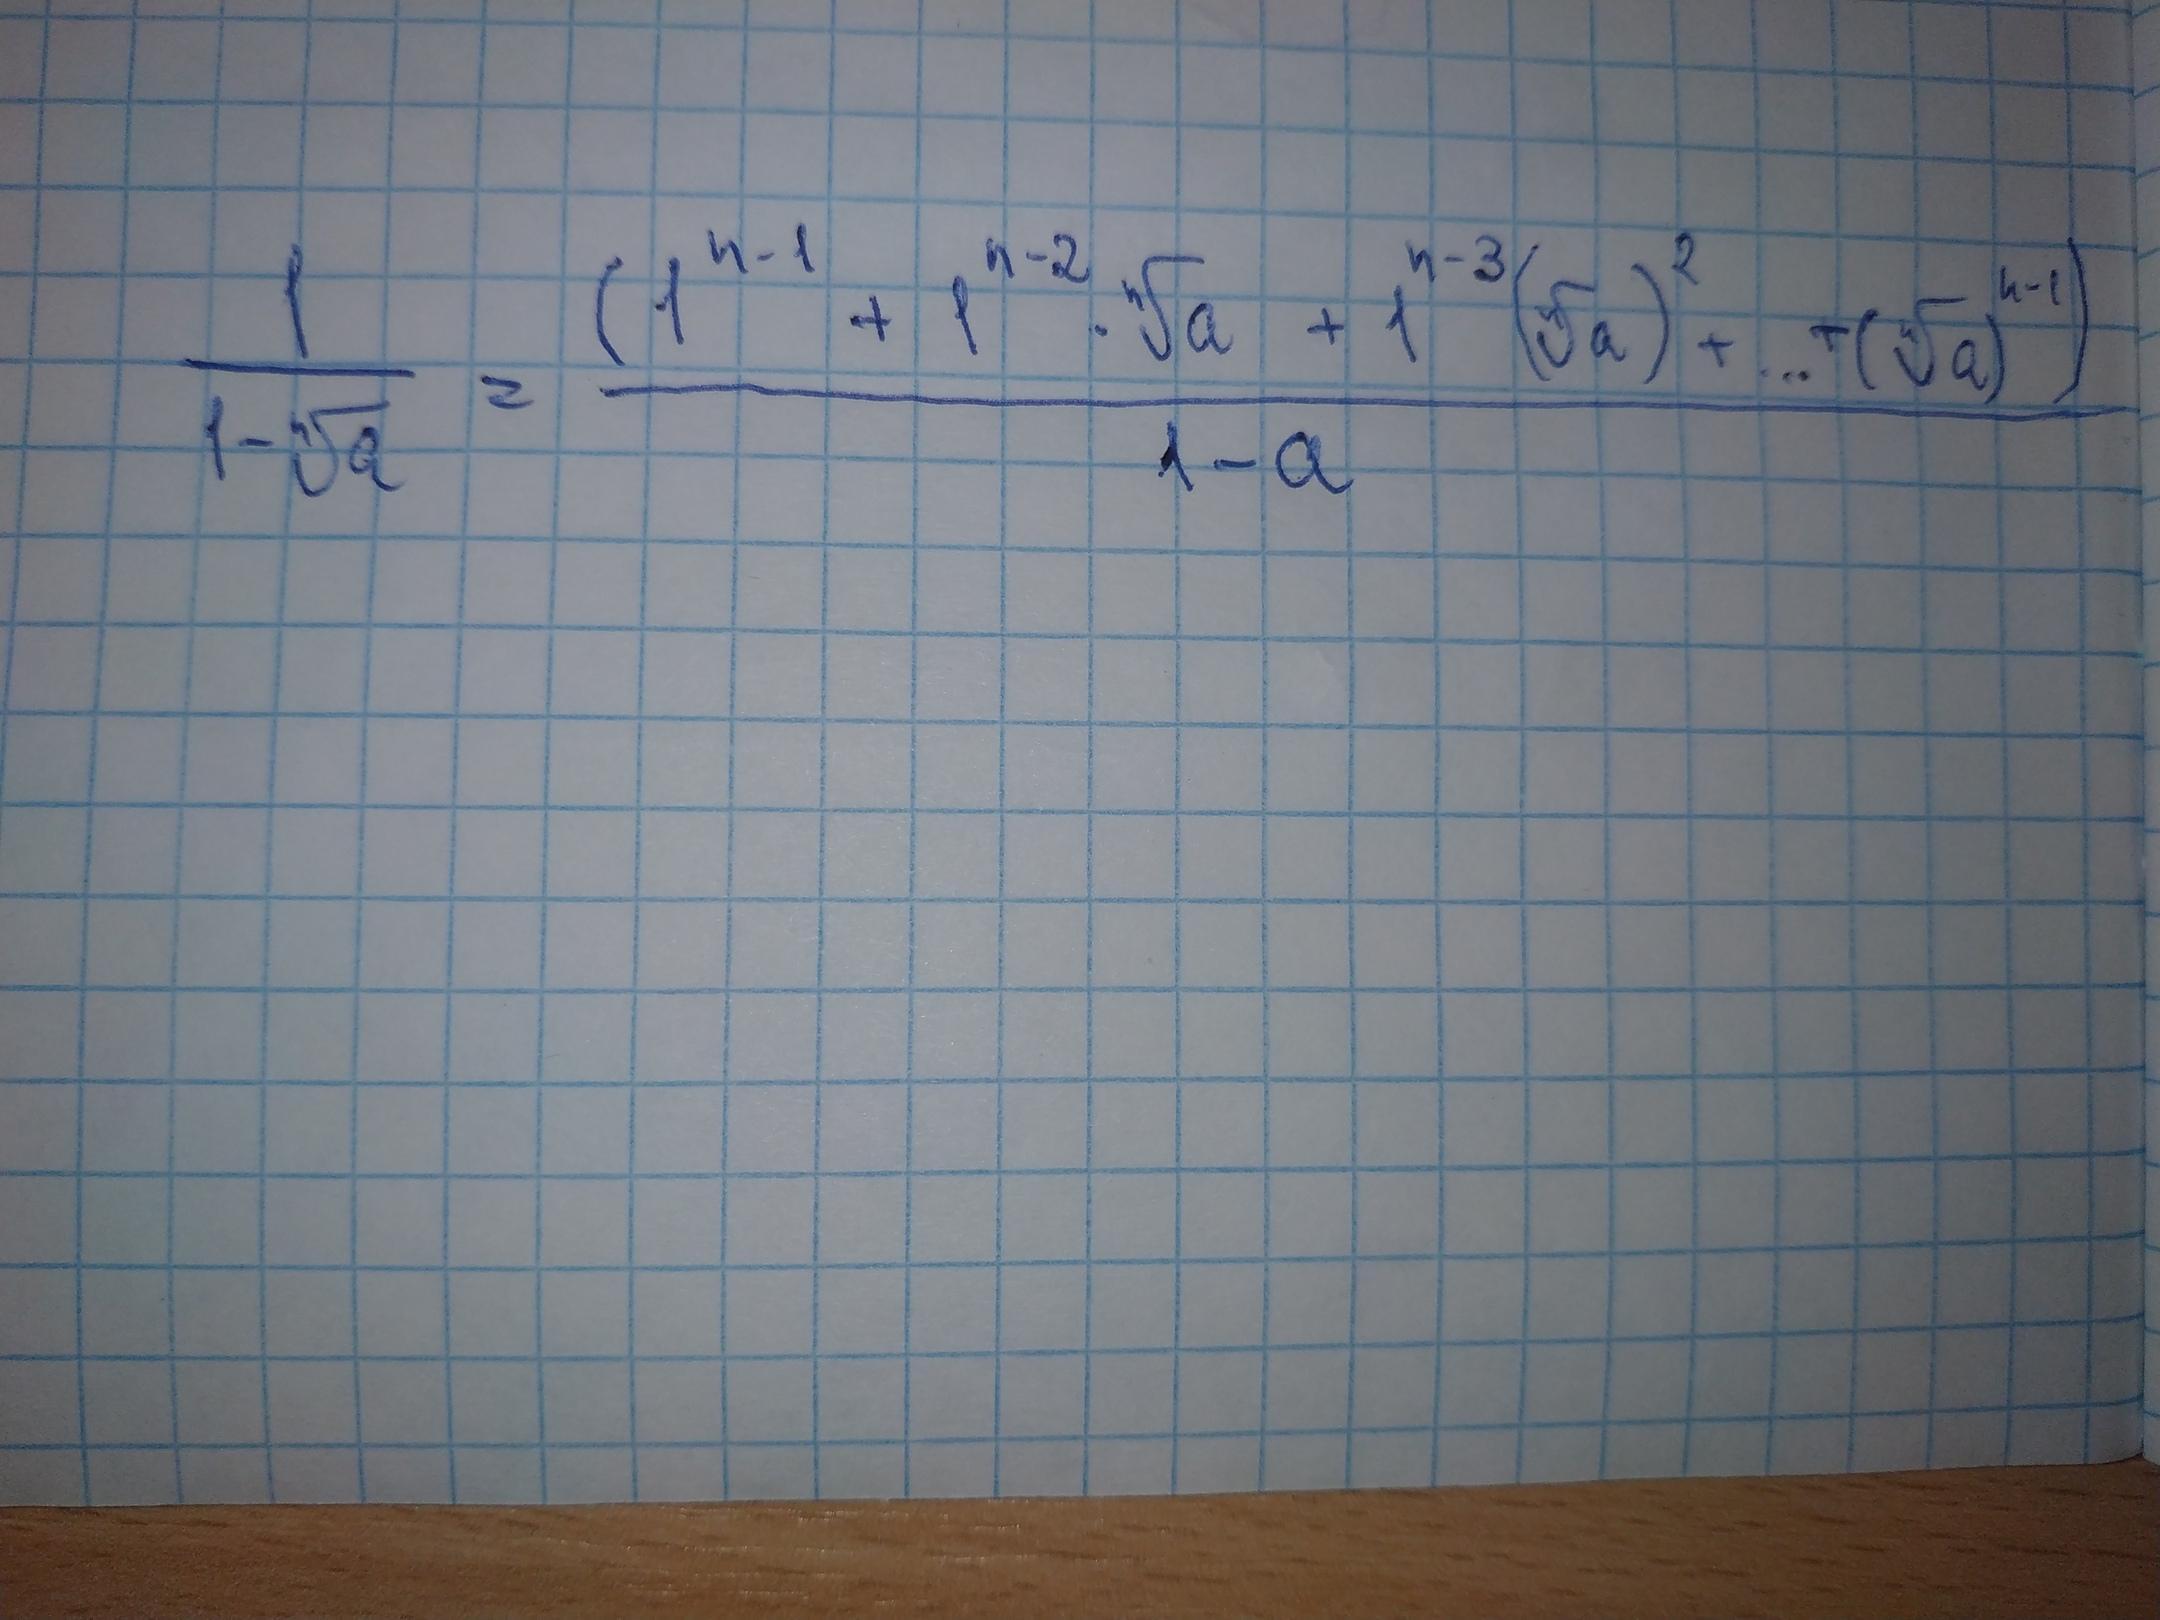 \frac{1}{1-\sqrt[n]{a}} = \frac{(1^{n-1} + 1^{n-2} \cdot \sqrt[n]{a} + 1^{n-3}(\sqrt[n]{a})^2 + \dots + (\sqrt[n]{a})^{n-1})}{1-a}